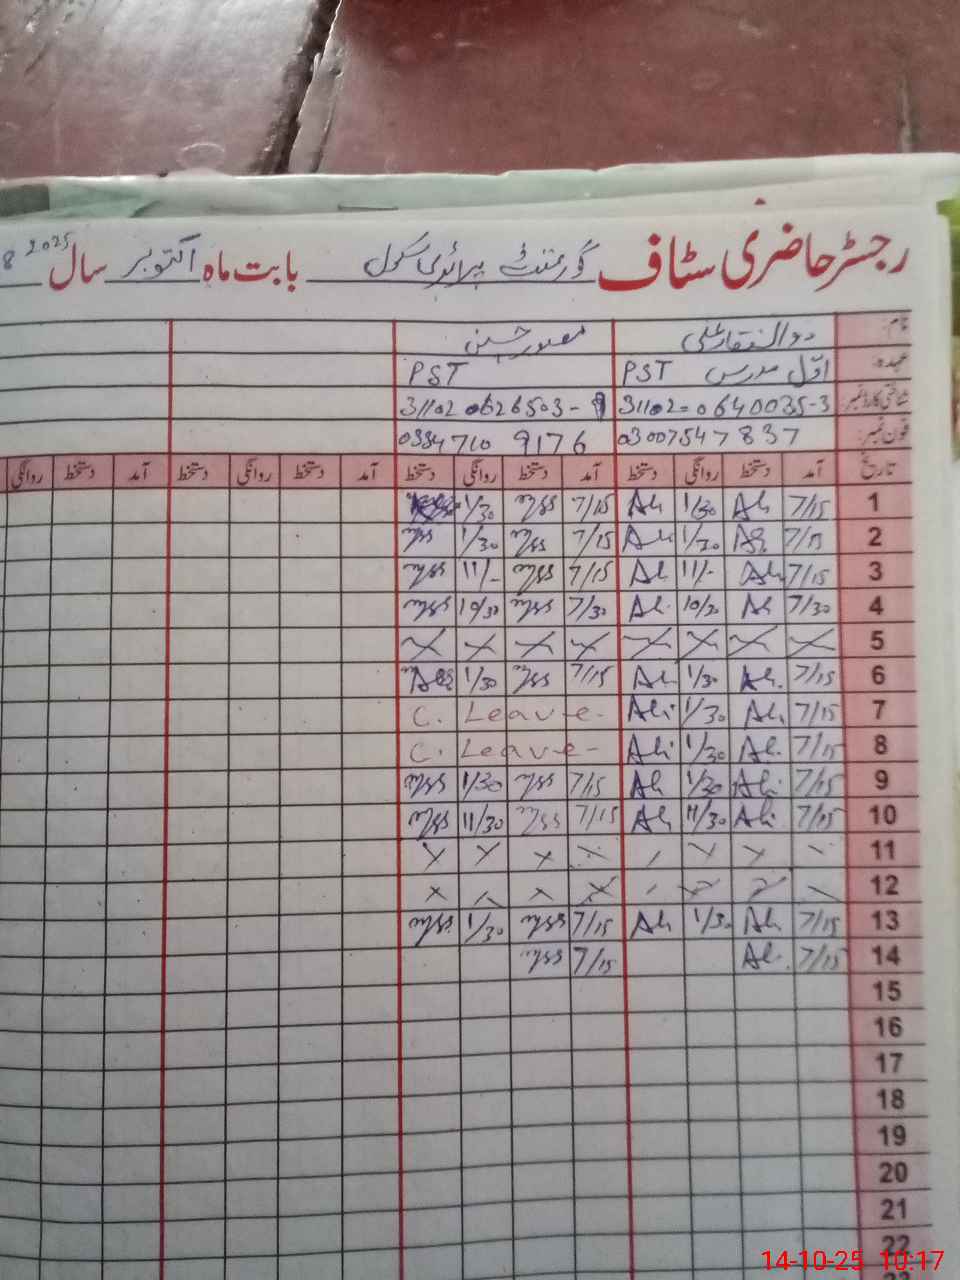 رجسٹر حاضری سٹاف گورنمنٹ پرائمری سکول بابت ماہ اکتوبر سال 2025
نام: ذوالفقار علی منصور حسین
عہدہ: اوّل مدرس PST PST
شناختی کارڈ نمبر: 31102-0640035-3 31102 0626503-9
فون نمبر: 03007547837 0334710 9176
تاریخ آمد دستخط روانگی دستخط آمد دستخط روانگی دستخط آمد دستخط روانگی دستخط آمد دستخط روانگی
1 7/15 Ali 1/30 Ali 7/15 1/30
2 7/15 Ali 1/30 Ali 7/15 1/30
3 7/15 Ali 11/- Ali 7/15 11/-
4 7/30 Ali 10/30 Ali 7/30 10/30
5 × × × × × × × ×
6 7/15 Ali 1/30 Ali 7/15 1/30
7 7/15 Ali 1/30 Ali C. Leave-
8 7/15 Ali 1/30 Ali C. Leave-
9 7/15 Ali 1/30 Ali 7/15 1/30
10 7/15 Ali 11/30 Ali 7/15 11/30
11
12
13 7/15 Ali 1/30 Ali 7/15 1/30
14 7/15 Ali 7/15
15
16
17
18
19
20
21
22
14-10-25 10:17